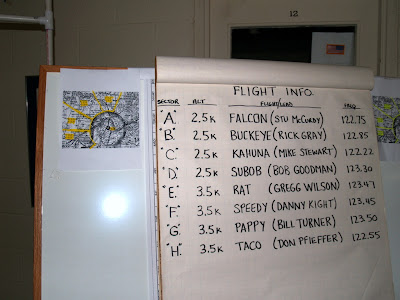 12
FLIGHT INFO.
SECTOR ALT FLIGHT/LEAD FREQ.
"A" 2.5K FALCON (STU McCURDY) 122.75
"B" 2.5K BUCKEYE (RICK GRAY) 122.85
"C" 2.5K KAHUNA (MIKE STEWART) 122.22
"D" 2.5K SUBOB (BOB GOODMAN) 123.30
"E" 3.5K RAT (GREGG WILSON) 123.47
"F" 3.5K SPEEDY (DANNY KIGHT) 123.45
"G" 3.5K PAPPY (BILL TURNER) 123.50
"H" 3.5K TACO (DON PFIEFFER) 122.55